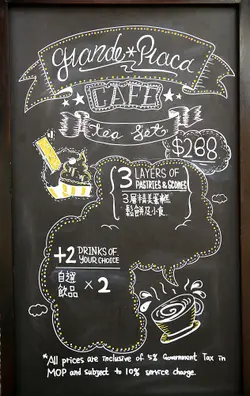 Grande*Piaca
CAFE
tea Set
$268
3 LAYERS OF
PASTRIES & SCONES
3層精美蛋糕
鬆餅及小食
+2 DRINKS OF
YOUR CHOICE
自選
飲品 x 2
*All prices are inclusive of 5% Government Tax in
MOP and subject to 10% service charge.